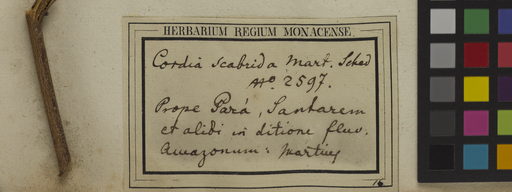 HERBARIUM REGIUM MONACENSE.
Cordia scabrida Mart. Sched
No. 2597.
Prope Pará, Santarem
et alibi in ditione fluv.
Amazonum: Martius
16